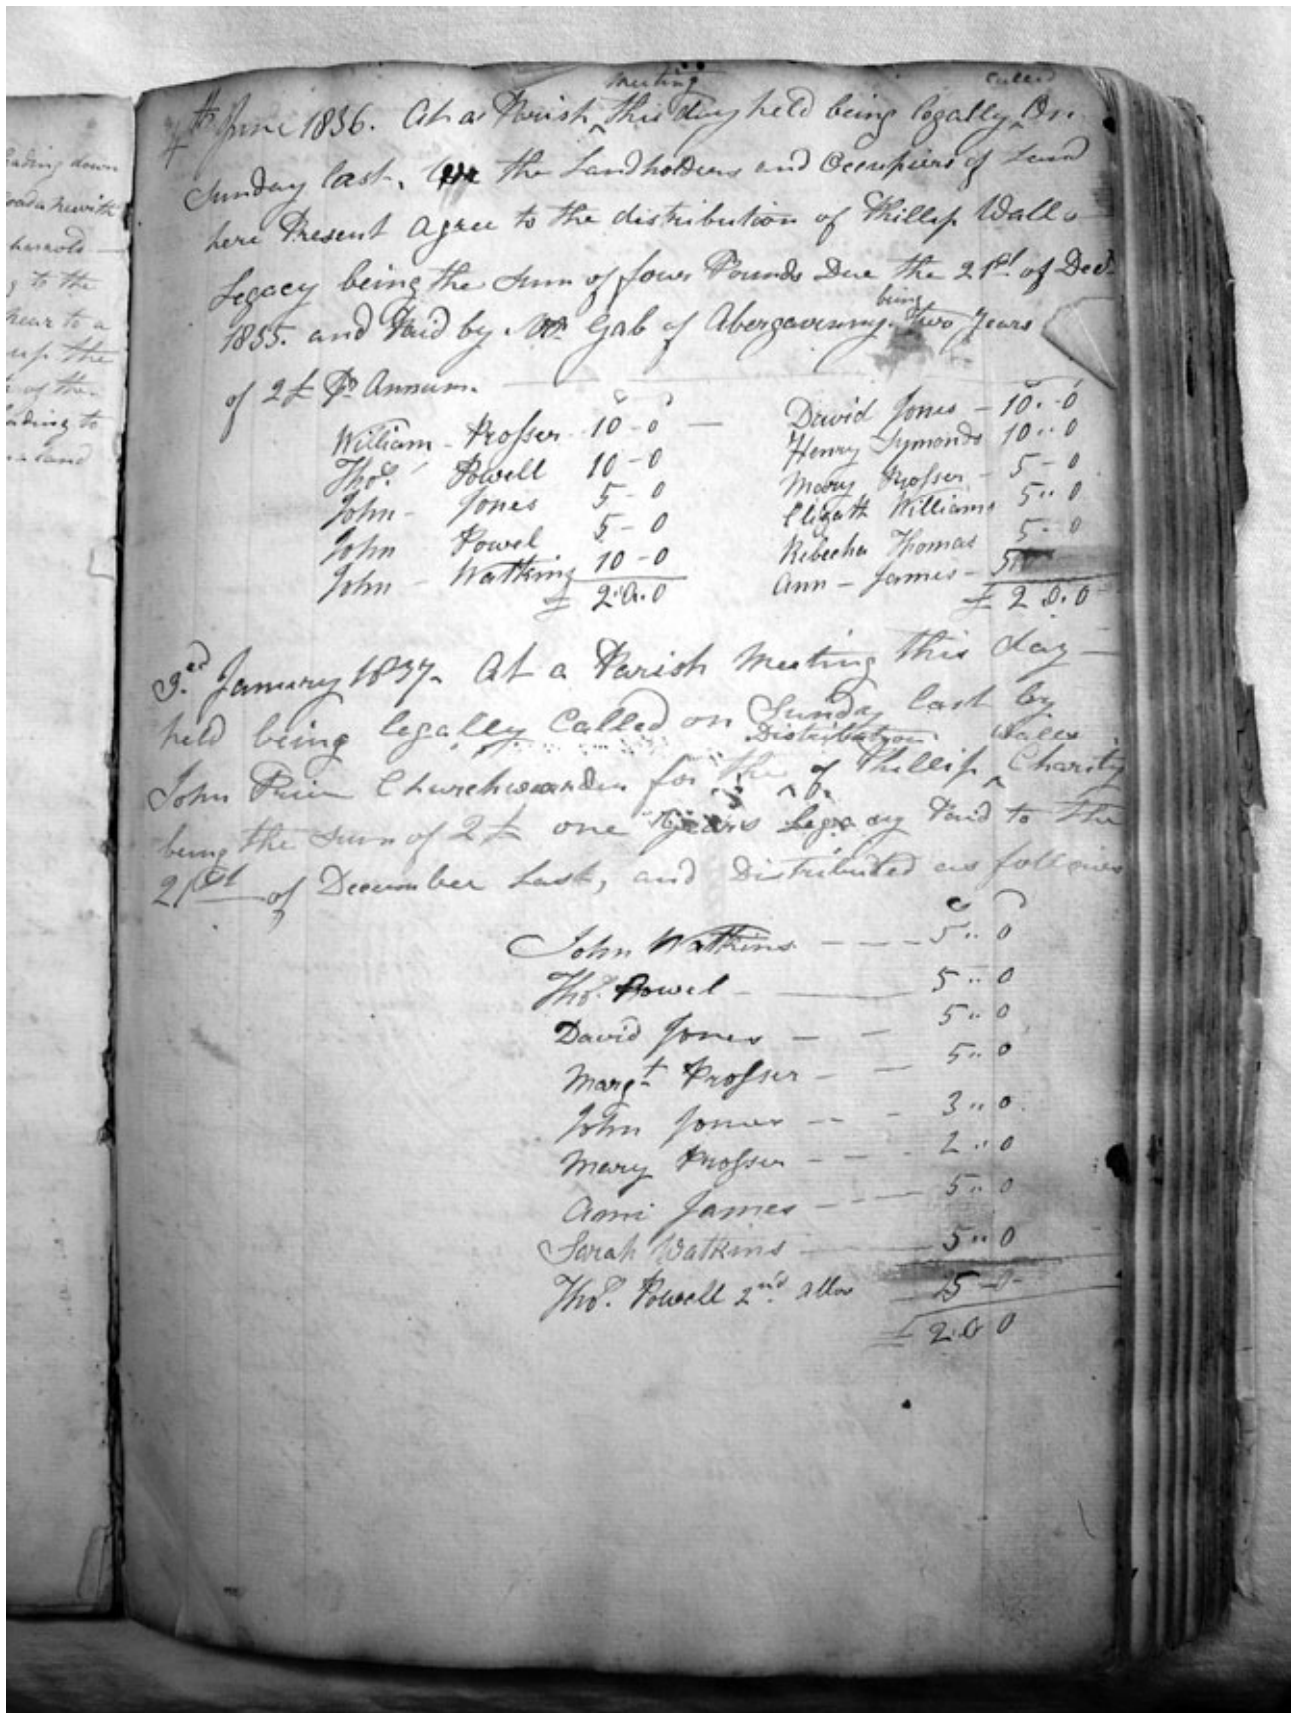 ading down
oad a
harrold
g to the
near to a
up the
of the
ading to
land
meeting called
4th June 1836. At a Parish this day held being legally On
Sunday last. We the Landholders and Occupiers of Land
here Present agree to the distribution of Phillip Walls
Legacy being the Sum of four Pounds Due the 21st of Decr
being
1835. and Paid by Mr Gab of Abergavenny. two Years
of 2£ Pr Annum.
William - Prosser 10 - 0
Thos. Powell 10 - 0
John - Jones 5 - 0
John Powel 5 - 0
John - Watkins 10 - 0
£ 2.0.0
David Jones - 10 - 0
Henry Symonds 10 .. 0
Mary Prosser - 5 - 0
Elizath Williams 5 .. 0
Rebecha Thomas 5 - 0
Ann - James - 5 0
£ 2 0. 0
3.ed January 1837. At a Parish Meeting this day -
held being legally Called on Sunday last by
Distribution Walls
John Price Churchwarden for the of Phillip Charity
being the Sum of 2£ one Years Legacy Paid to the
21st of December Last, and Distributed as follows
John Watkins - - - 5 .. 0
Thos. Powel - 5 .. 0
David Jones - - 5 .. 0
Margt Prosser - - 5 .. 0
John Jones - - - 3 .. 0
Mary Prosser - - - 2 .. 0
Ann James - - - 5 .. 0
Sarah Watkins - 5 .. 0
Thos. Powell 2nd allow 5 - 0 -
£ 2. 0 0